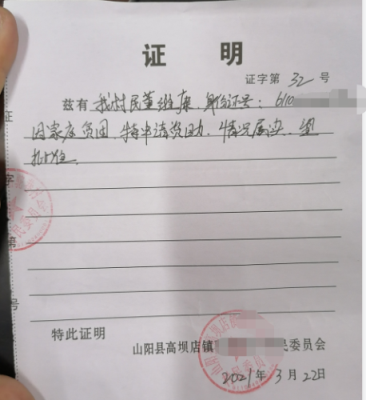 证 明
证字第 32 号
兹有 我村民董继康,身份证号:610
因家庭贫困,特申请资助,情况属实,望
批准
特此证明
山阳县高坝店镇 民委员会
2021年 3月 22日